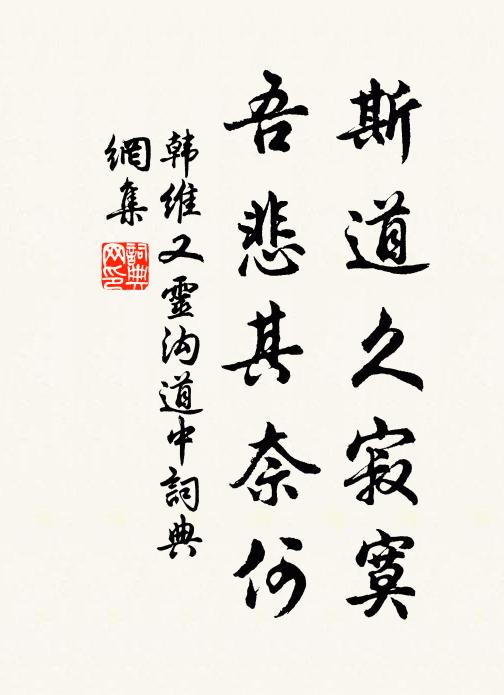 斯道久寂寞
吾悲其奈何
韩维又靈沟道中詞典
網集
詞典
网印